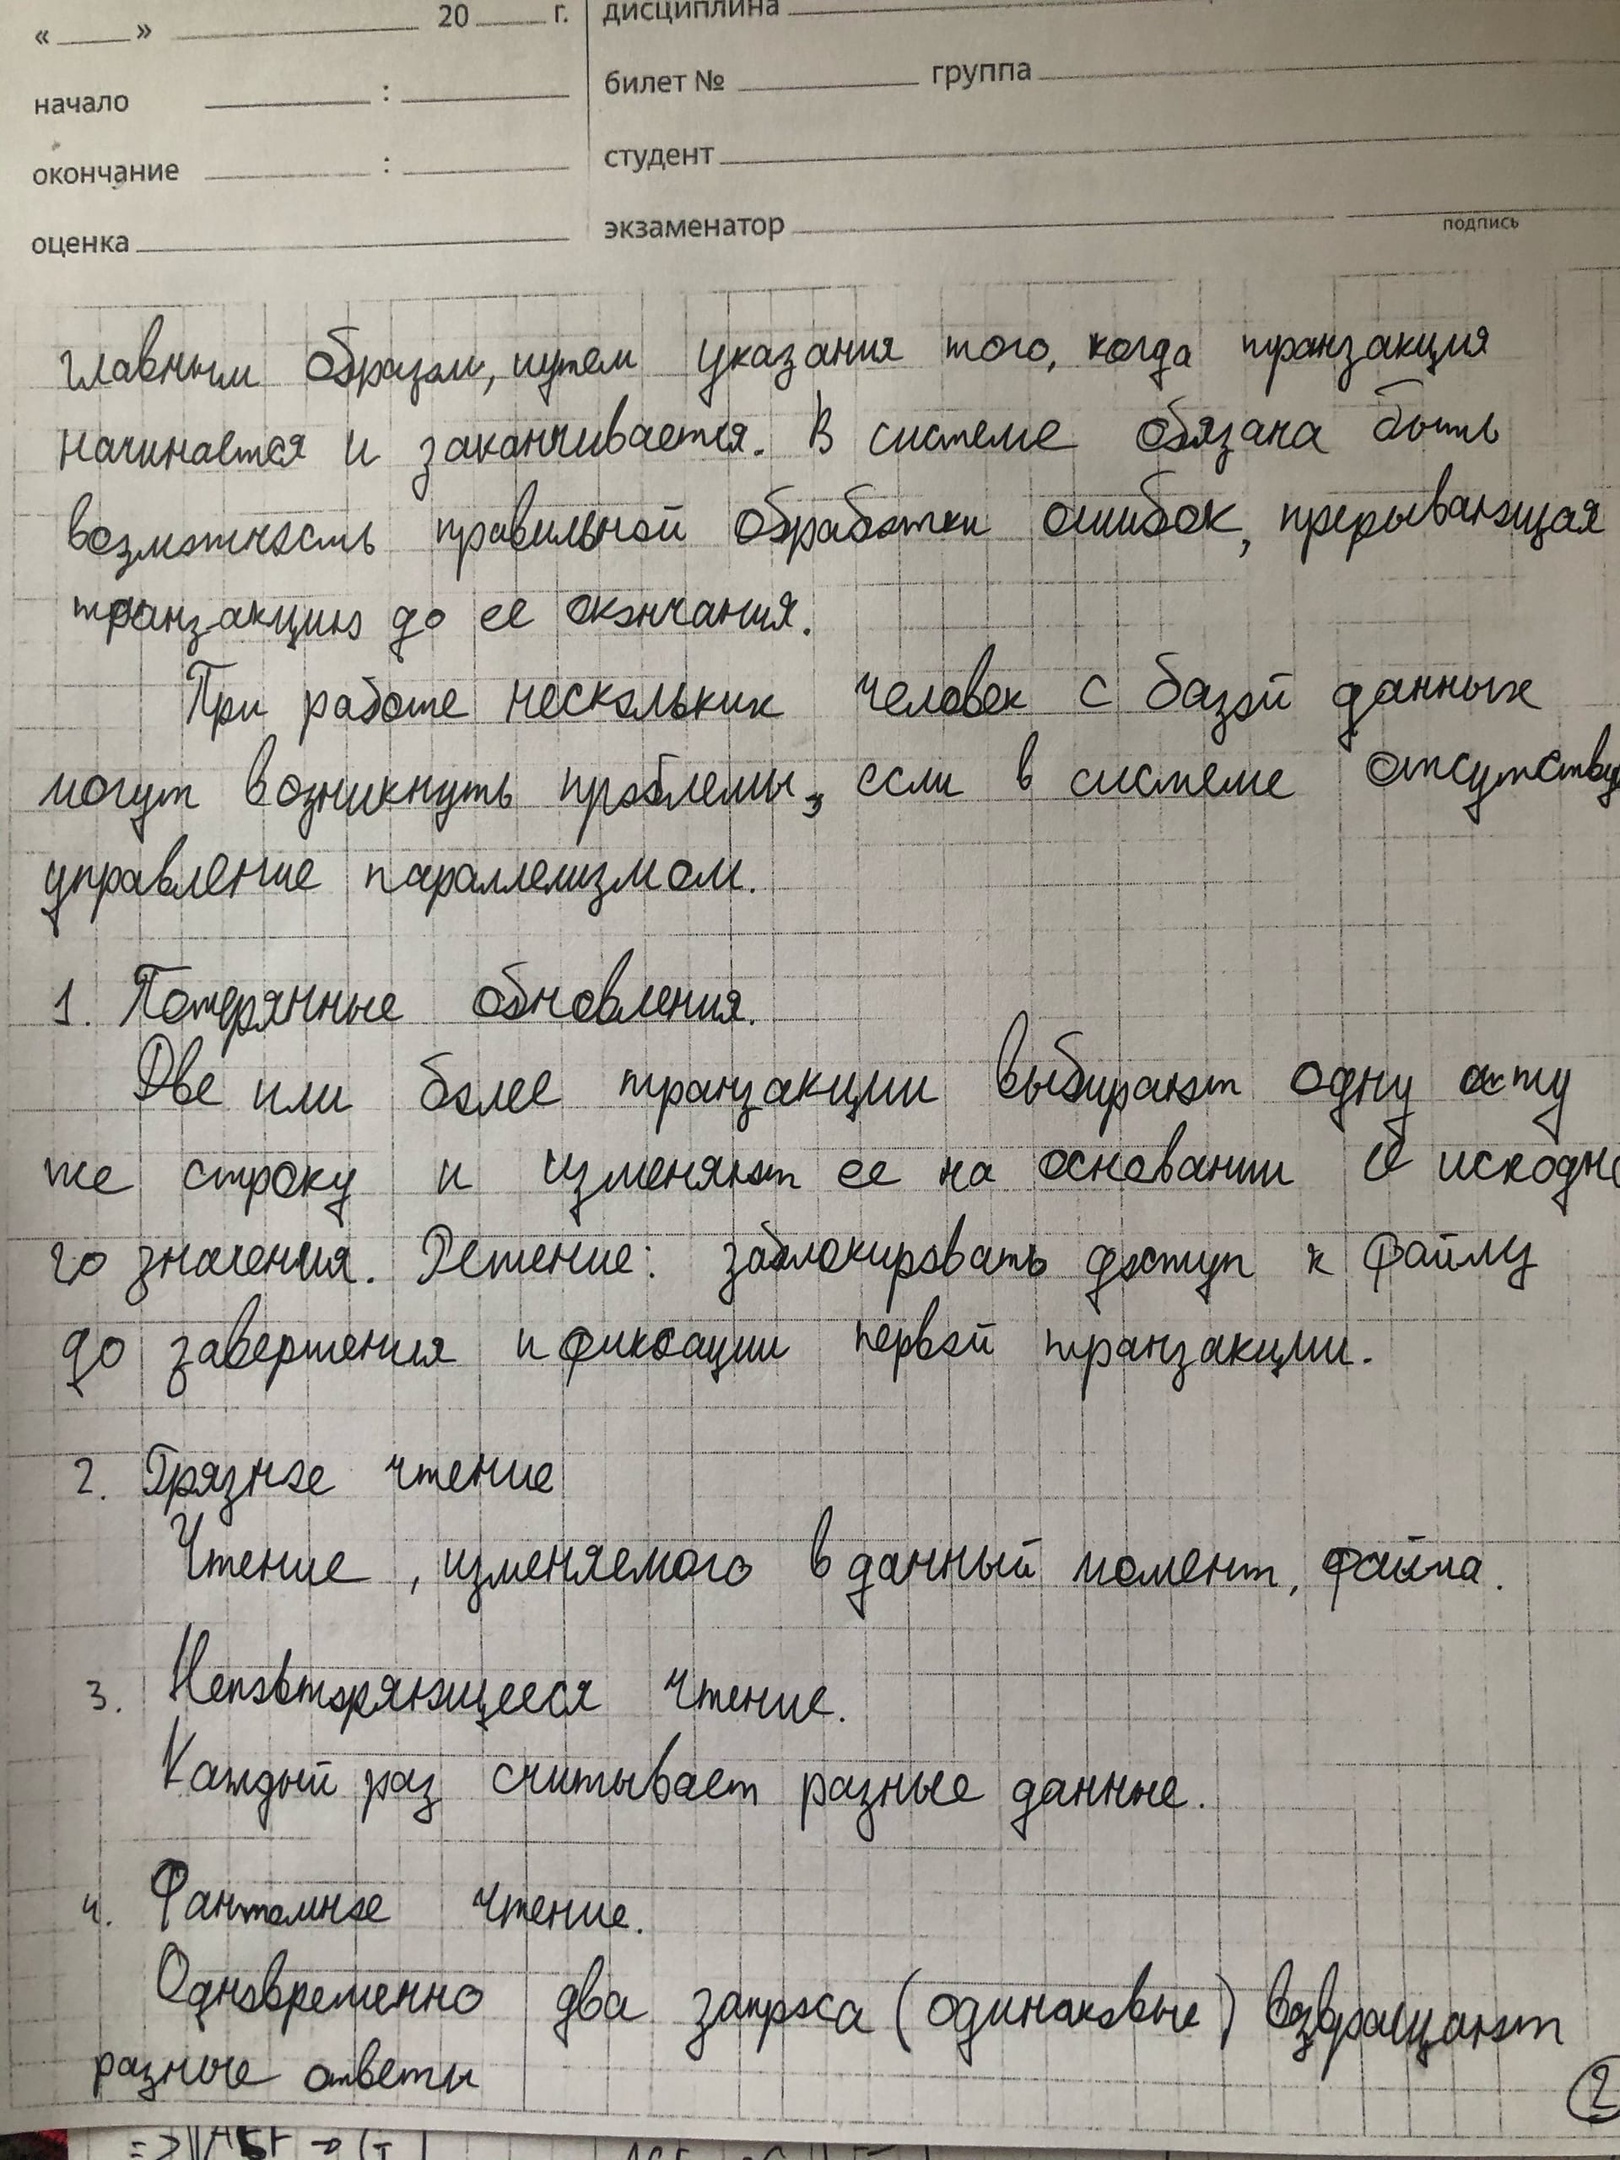 « » 20 г. дисциплина
билет № группа
начало :
студент
окончание :
экзаменатор
подпись
оценка
главным образом, путем указания того, когда транзакция
начинается и заканчивается. В системе обязана быть
возможность правильной обработки ошибок, прерывающая
транзакцию до ее окончания.
При работе нескольких человек с базой данных
могут возникнуть проблемы, если в системе отсутству
управление параллелизмом.
1. Потерянные обновления.
Две или более транзакции выбирают одну и ту
же строку и изменяют ее на основании ее исходно
го значения. Решение: заблокировать доступ к файлу
до завершения и фиксации первой транзакции.
2. Грязное чтение
Чтение, изменяемого в данный момент, файла.
3. Неповторяющееся чтение.
Каждый раз считывает разные данные.
4. Фантомное чтение.
Одновременно два запроса (одинаковые) возвращают
разные ответы
2